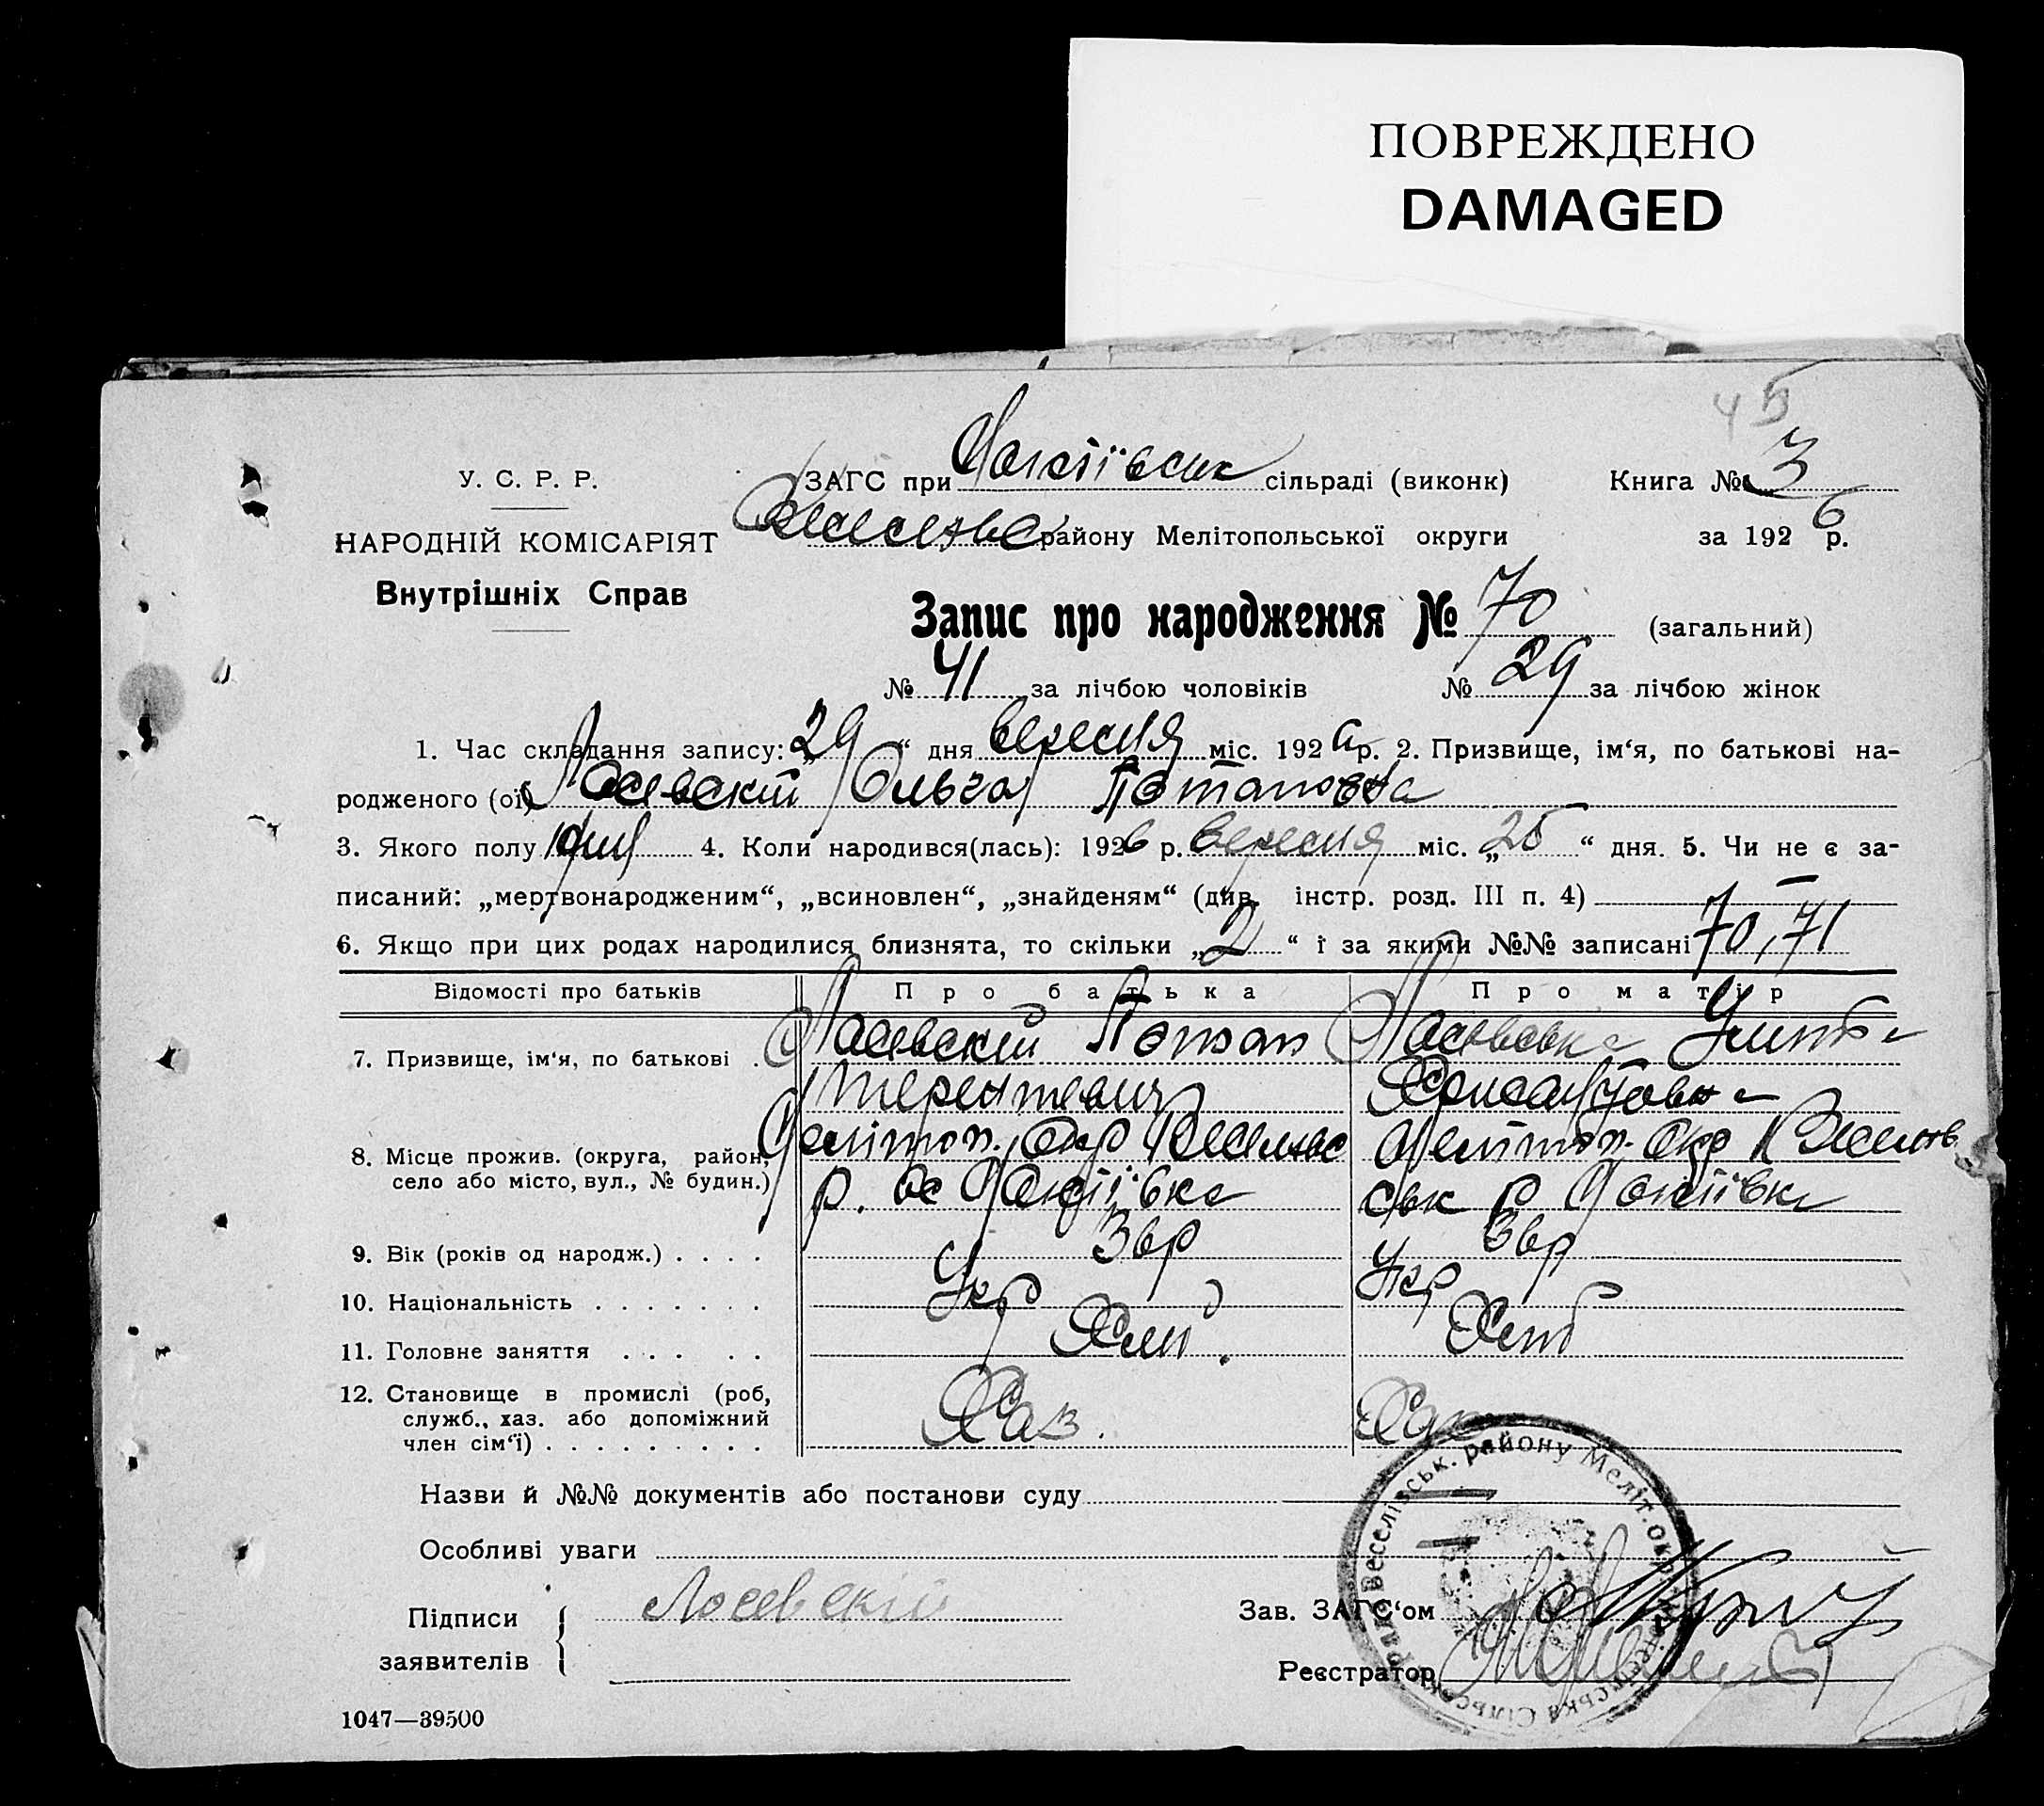 ПОВРЕЖДЕНО
DAMAGED
45
У. С. Р. Р.
НАРОДНІЙ КОМІСАРІЯТ
Внутрішніх Справ
ЗАГС при сільраді (виконк)
району Мелітопольської округи
Книга № 3
за 1926 р.
Запис про народження № 70 (загальний)
№ 41 за лічбою чоловіків № 29 за лічбою жінок
1. Час складання запису: „29“ дня вересня міс. 1926 р. 2. Призвище, ім‘я, по батькові на-
родженого (ої) Лосевскій Ольга Потаповна
3. Якого полу 4. Коли народився(лась): 1926 р. вересня міс. „25“ дня. 5. Чи не є за-
писаний: „мертвонародженим“, „всиновлен“, „знайденям“ (див. інстр. розд. III п. 4) —
6. Якщо при цих родах народилися близнята, то скільки „2“ і за якими №№ записані 70, 71
Відомості про батьків Про батька Про матір
7. Призвище, ім‘я, по батькові . Лосевскій Потап
Терентевич
8. Місце прожив. (округа, район, село або місто, вул., № будин.) Мелітоп. Окр Веселовс
Мелітоп. Окр Веселов
ськ р
9. Вік (років од народж.) . . . . 36 р 36 р
10. Національність . . . . . . . Укр Укр
11. Головне заняття . . . . . Хліб. Хліб
12. Становище в промислі (роб,
служб., хаз. або допоміжний
член сім‘ї) . . . . . . . . . Хаз.
Назви й №№ документів або постанови суду
Особливі уваги
Підписи
заявителів
Лосевскій
Зав. ЗАГС‘ом
Реєстратор
Веселівськ. району Меліт. окр.
1047—39500